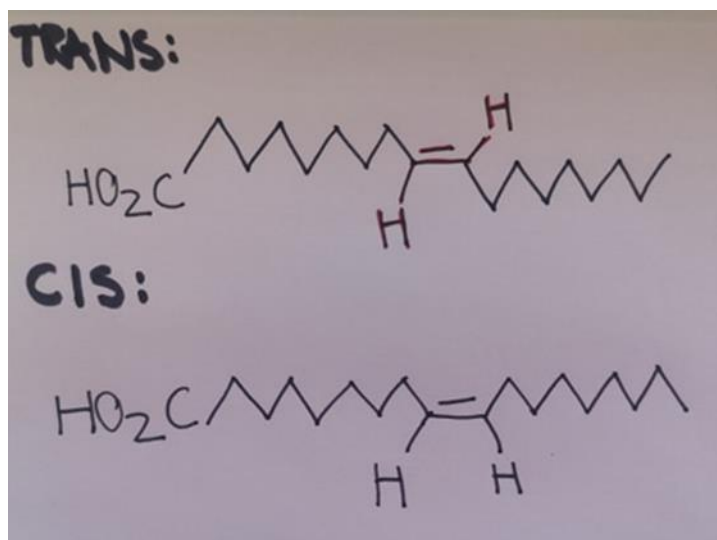 TRANS:
H
HO₂C
H
CIS:
HO₂C
H H